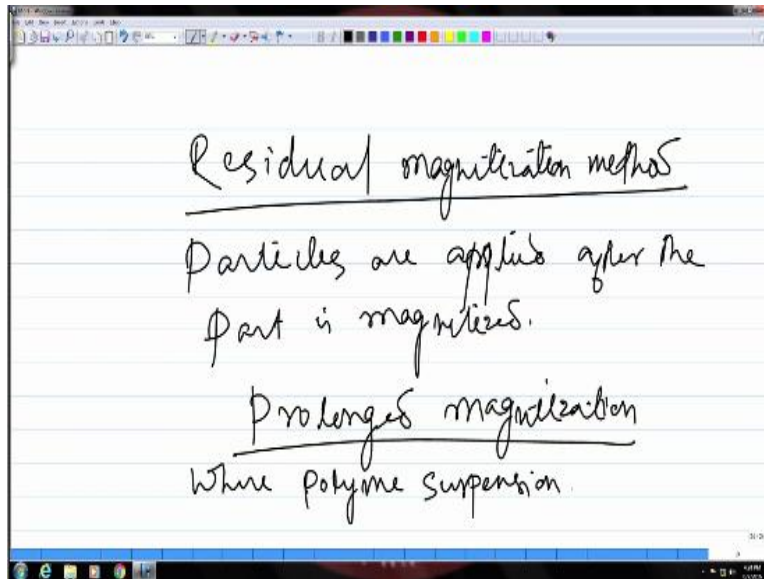 Residual magnitization method
Particles are applied after the
Part is magnitized.
Prolonged magnitization
Where polyme suspension.